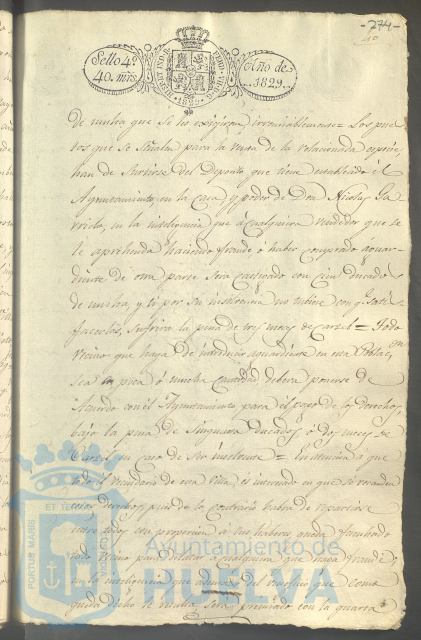 -274-
Sello 4º
40. mrs.
HISPAN. IND. R.
FERD. VII. D. G.
1829
Año de
1829
de multa que se les exigirán irremisiblemente = Los pues
tos que se señala para la venta de la relacionada especie,
han de surtirse del Deposito que tiene establecido el
Ayuntamiento, en la casa y poder de Don Nicolas Ga
rrido, en la inteligencia que á cualquiera vendedor que se
le aprehenda haciendo fraude ó haber comprado aguar
diente de otra parte será castigado con cien ducados
de multa, y si por su insolvencia no tubiere con q.
facerlos, sufrira la pena de tres meses de carcel = Todo
vecino que haya de introducir aguardiente en esta Poblacion
sea poca ó mucha cantidad, debera ponerse de
acuerdo con el Ayuntamiento para el pago de los derechos,
bajo la pena de ducados, ó dos meses de
carcel en caso de ser insolvente = En atencion á que
todo el vecindario de esta villa es interesado en que se recauden
estos derechos, pues de lo contrario habrá de repartirse
entre todos con proporcion á sus haberes, queda facultado
todo vecino para delatar á cualquiera que haga fraude;
en la inteligencia que ademas del que
queda dicho se multa, será premiado con la cuarta
PORTUS MARIS
ET TERRAE
CUSTODIA
Ayuntamiento de
HUELVA